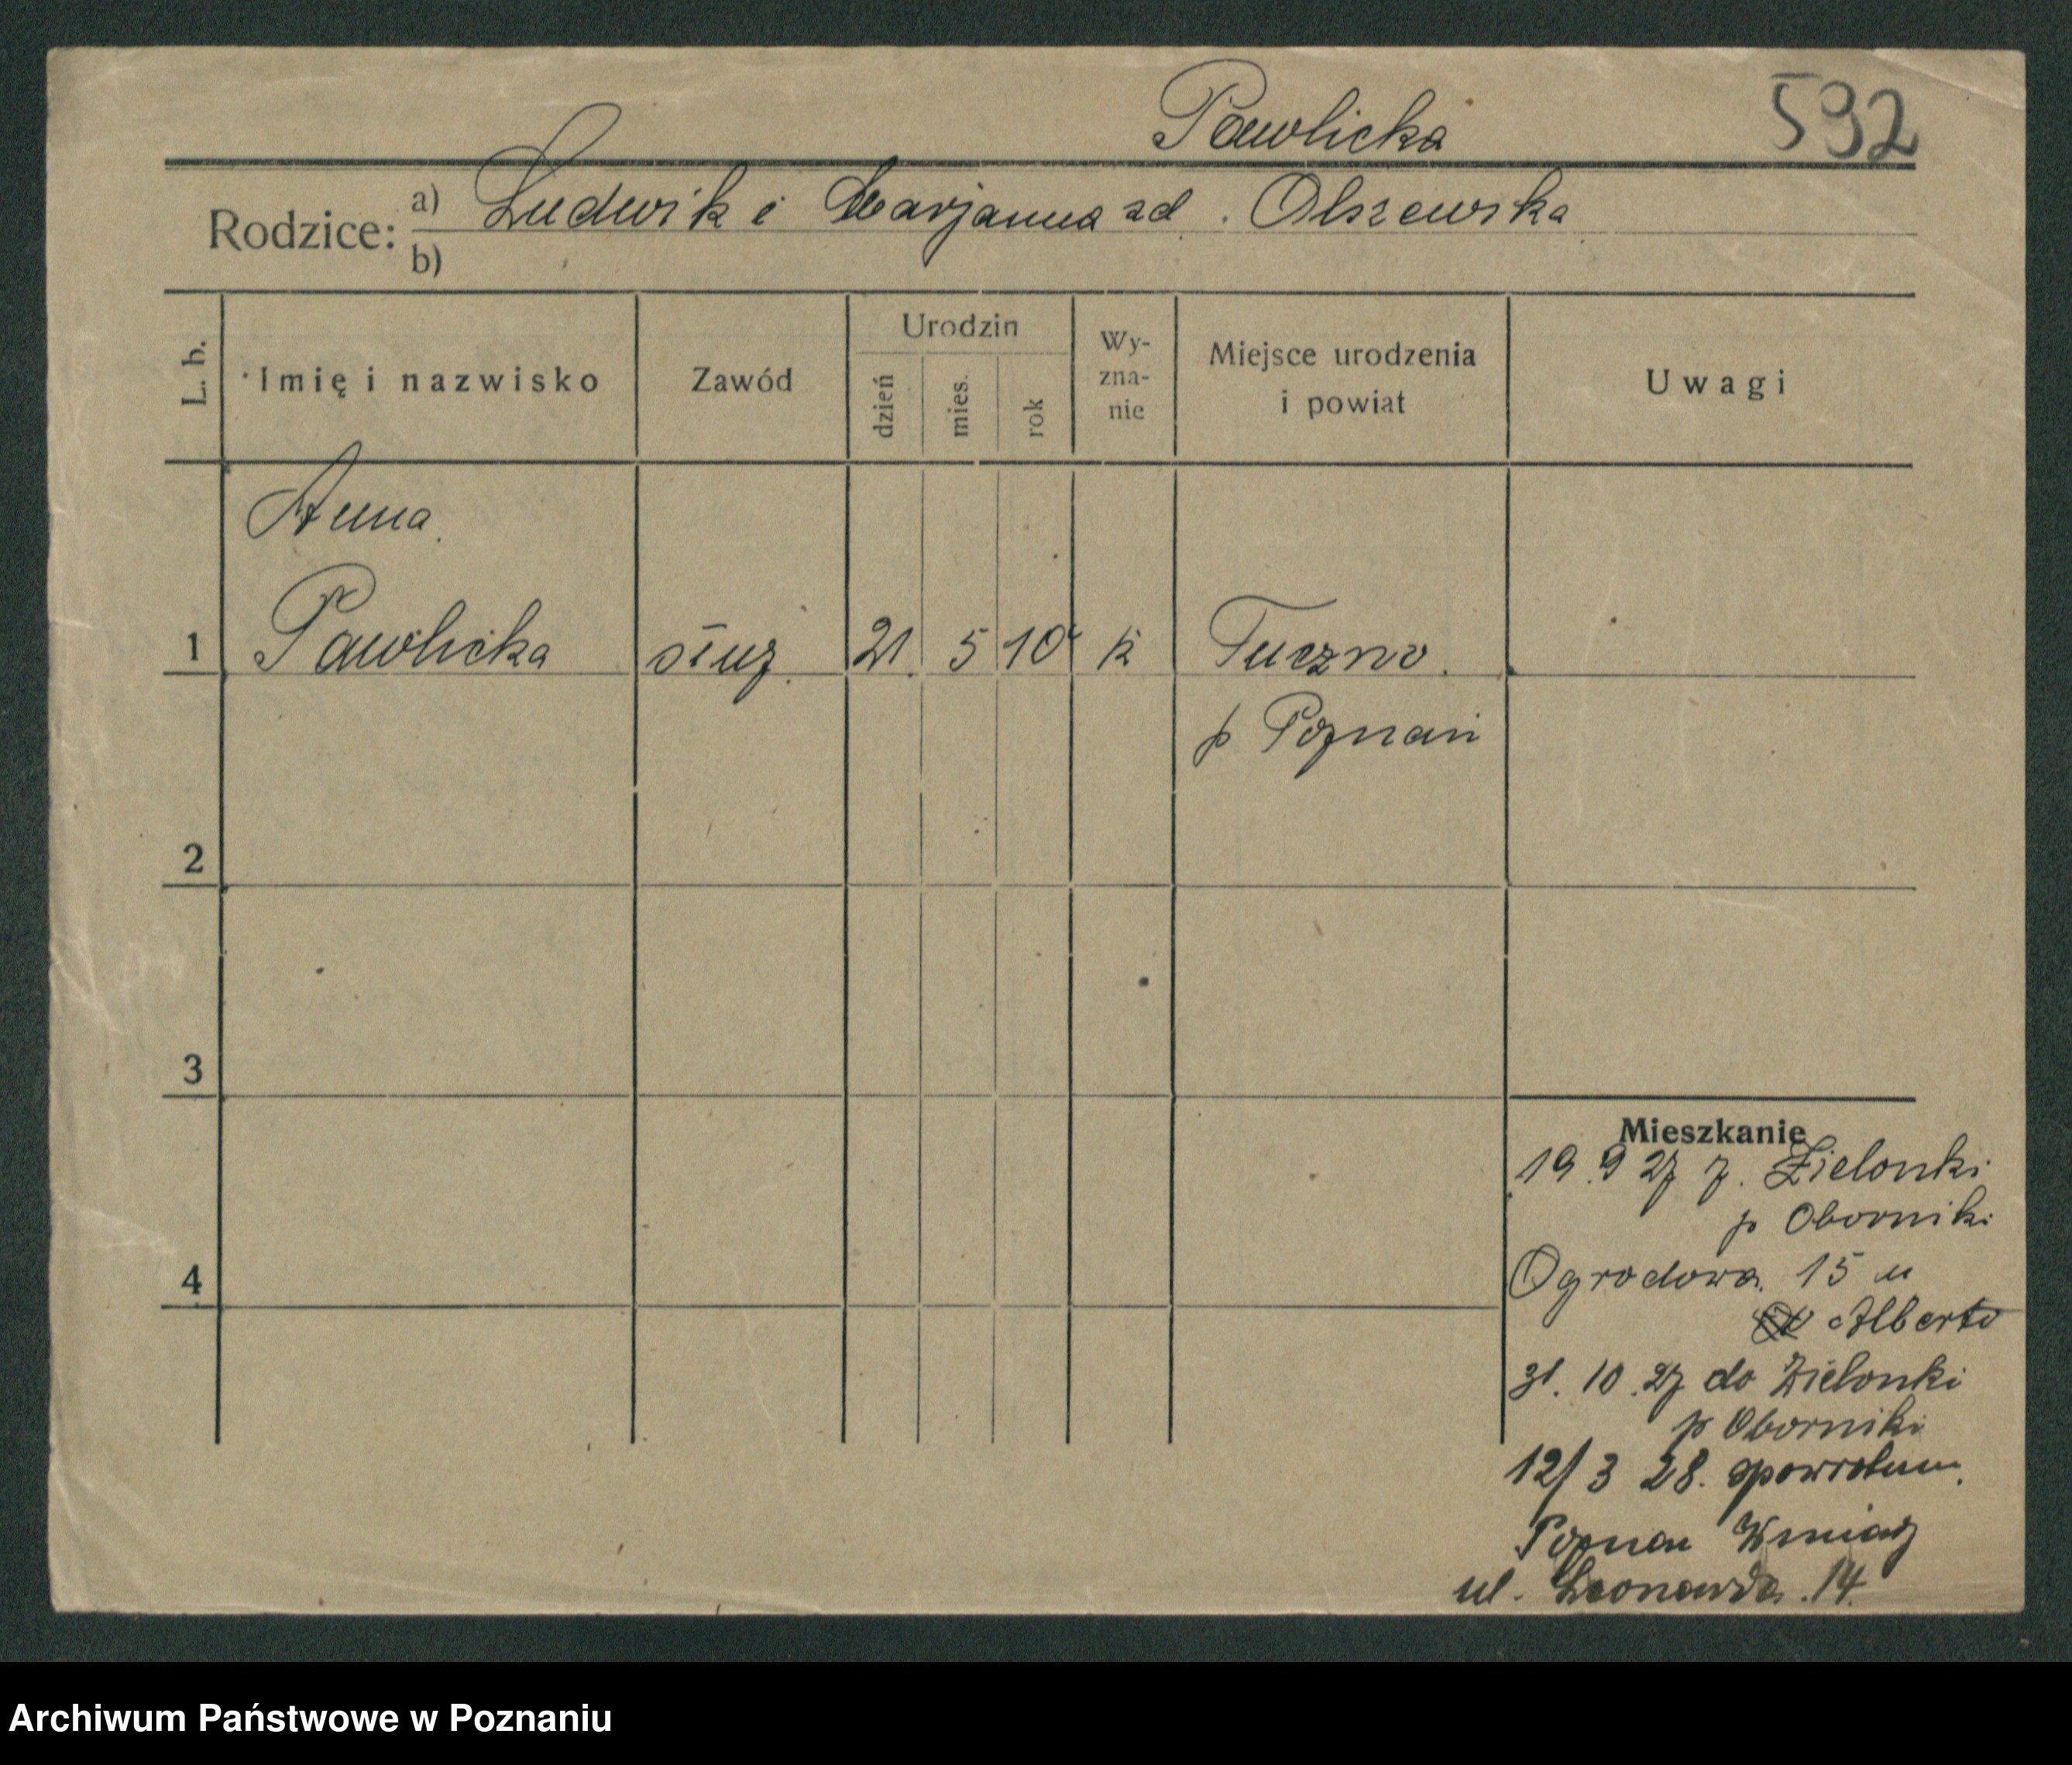 Pawlicka
592
Rodzice: a) Ludwik i Marjanna zd. Olszewska
b)
L. b.
Imię i nazwisko
Zawód
Urodzin
dzień
mies.
rok
Wy-
zna-
nie
Miejsce urodzenia
i powiat
Uwagi
Anna
1 Pawlicka służ. 21 5 10 k Tuczno.
p Poznań
2
3
4
Mieszkanie
19.9 27 z. Zielonki
p Oborniki
Ogrodowa 15 u
Alberto
31. 10. 27 do Zielonki
p Oborniki
12/3 28. spowrotem.
Poznan
ul. Leonarda. 14.
Archiwum Państwowe w Poznaniu